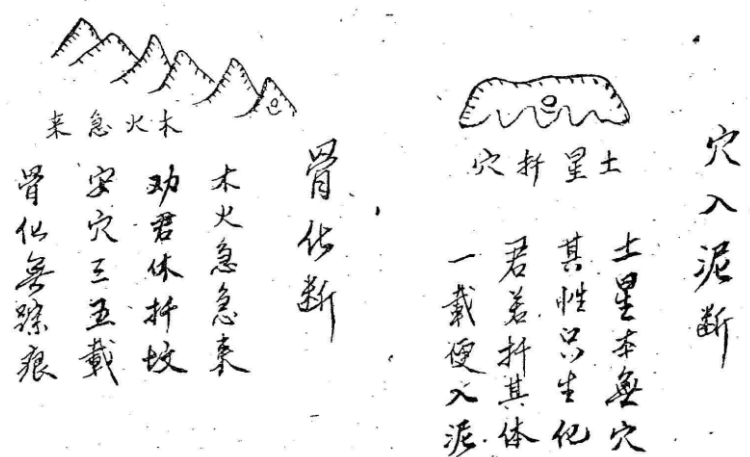 穴入泥断
土星扦穴
土星本無穴
其性只生化
君若扦其体
一載便入泥
骨化断
木火急来
木火急急来
劝君休扦坟
安穴三五載
骨化無踪痕